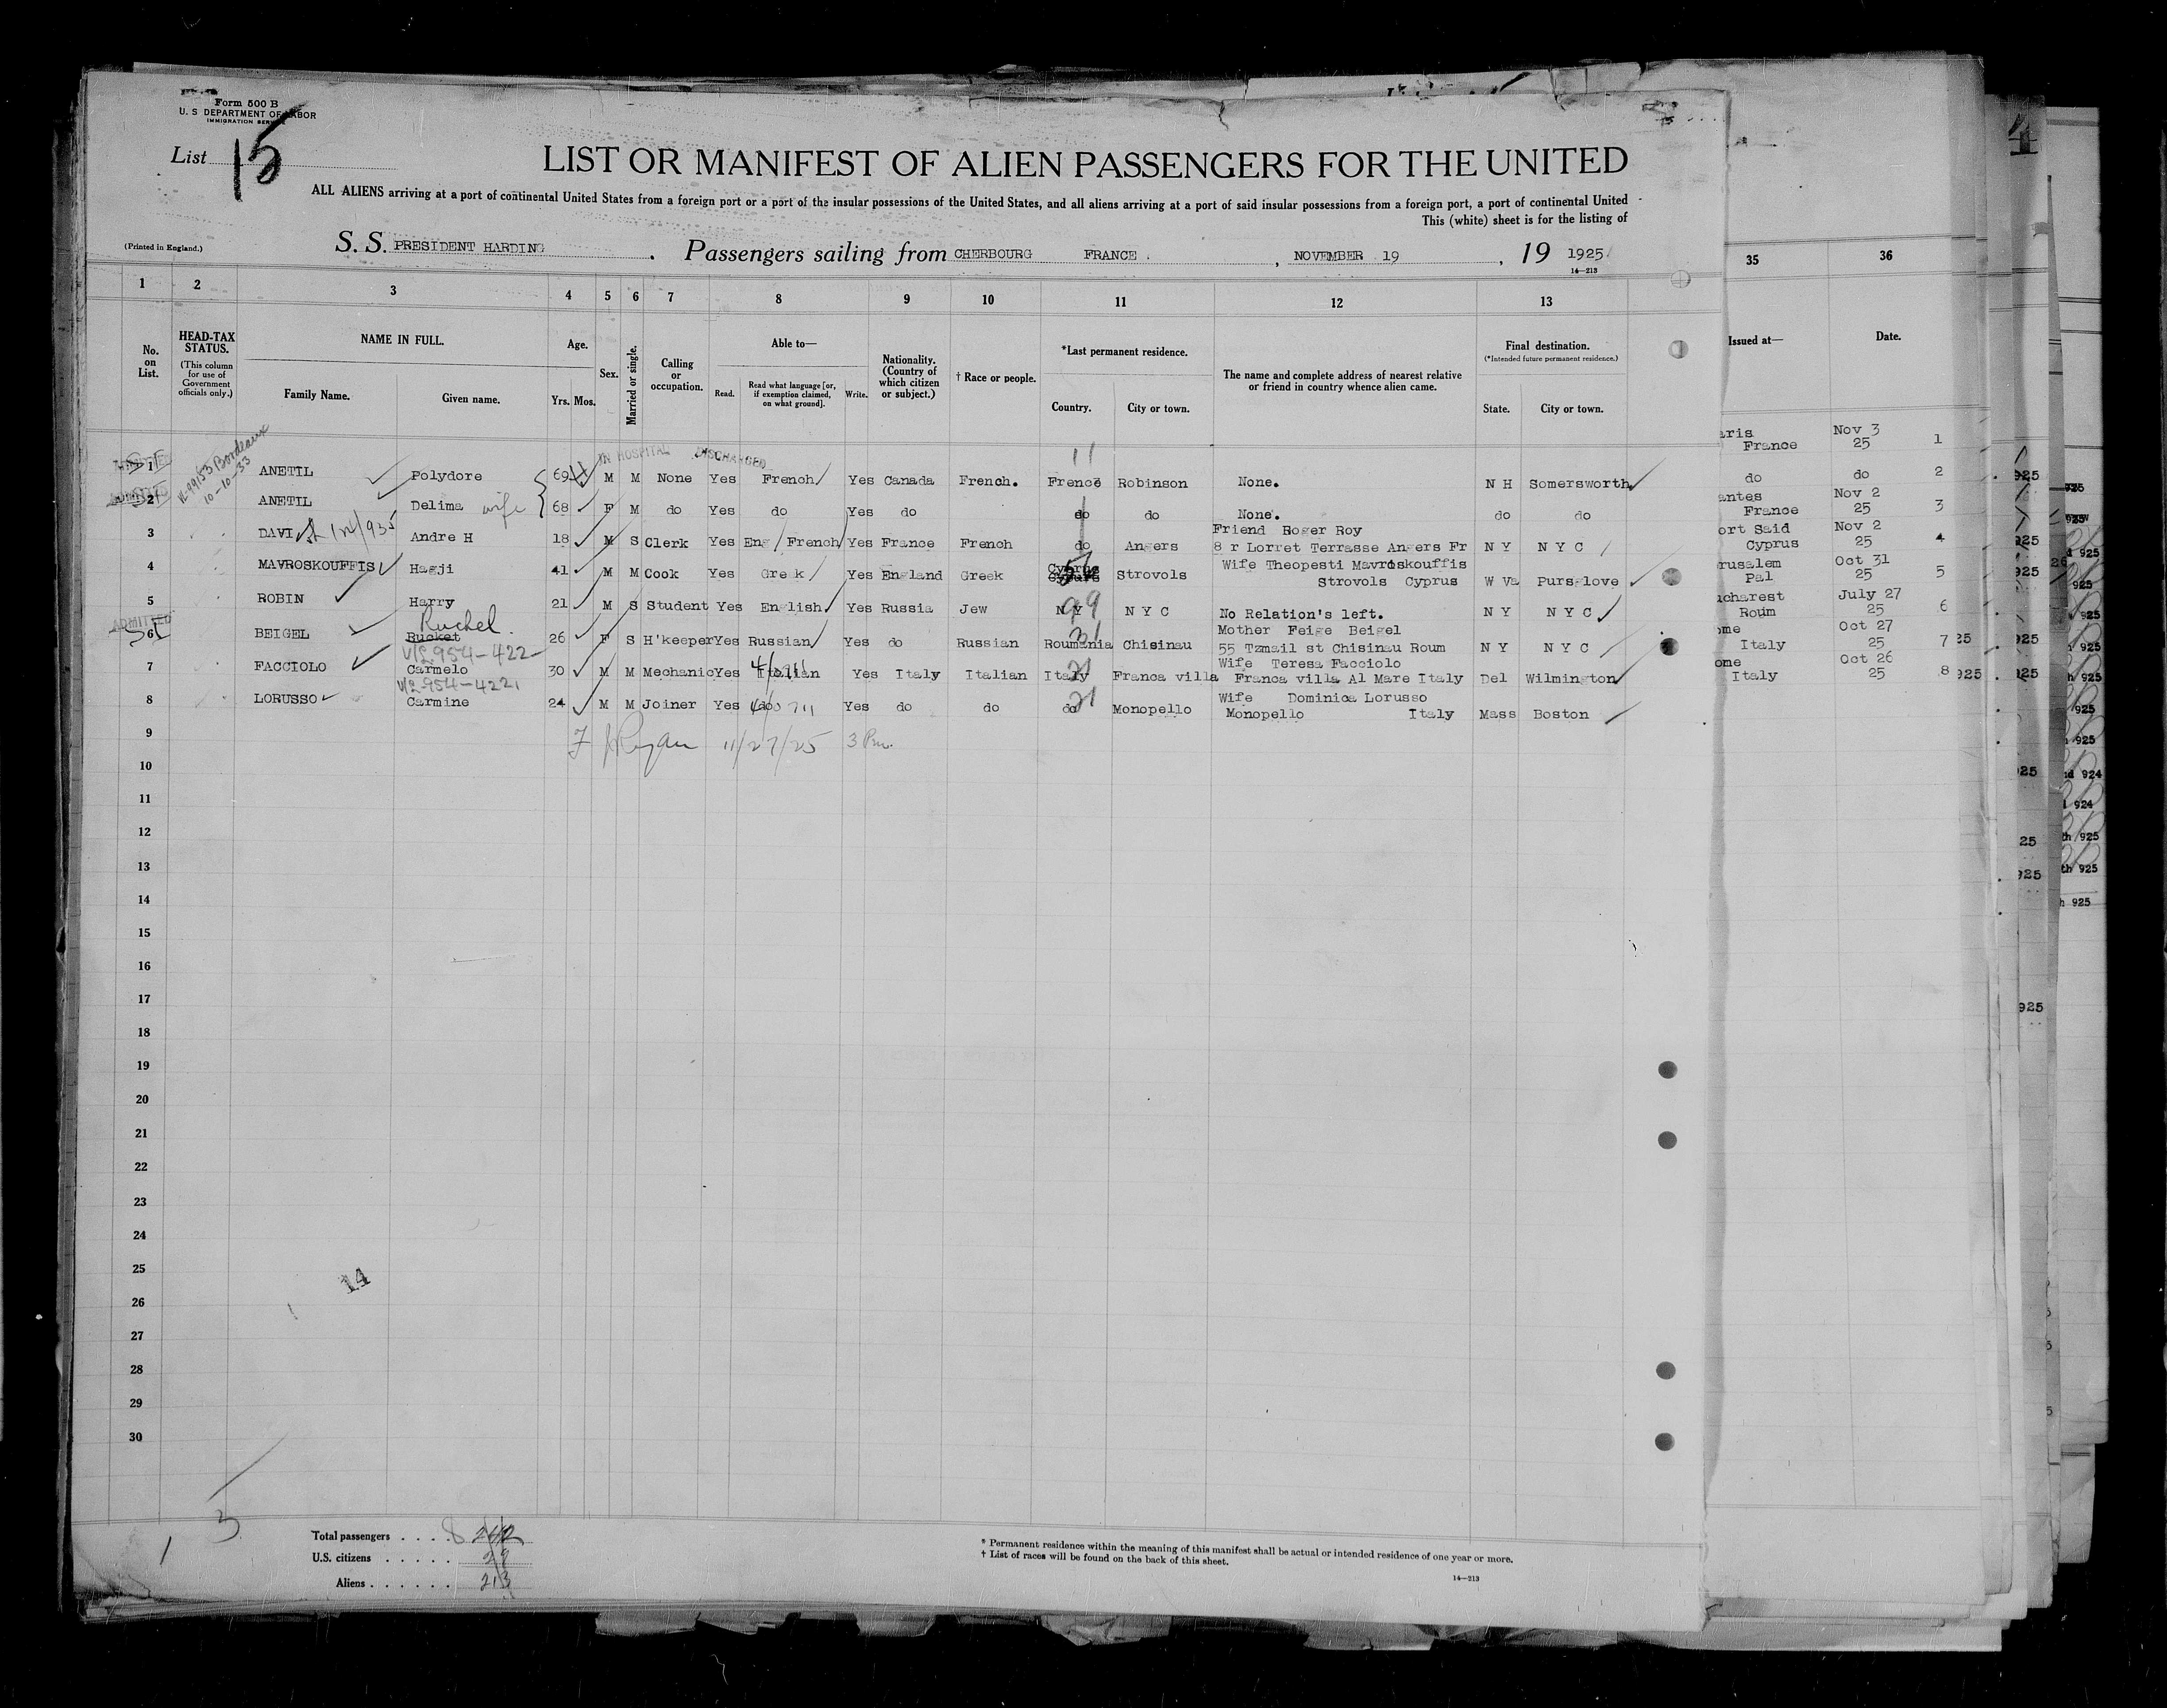 Form 500 B
U. S DEPARTMENT OF LABOR
IMMIGRATION SERVICE
List 15
LIST OR MANIFEST OF ALIEN PASSENGERS FOR THE UNITED
ALL ALIENS arriving at a port of continental United States from a foreign port or a port of the insular possessions of the United States, and all aliens arriving at a port of said insular possessions from a foreign port, a port of continental United
This (white) sheet is for the listing of
(Printed in England.)
S. S. PRESIDENT HARDING . Passengers sailing from CHERBOURG FRANCE , NOVEMBER 19 , 19 1925
14—213
1 2 3 4 5 6 7 8 9 10 11 12 13 35 36
No. on List. HEAD-TAX STATUS. (This column for use of Government officials only.) NAME IN FULL. Family Name. Given name. Age. Yrs. Mos. Sex. Married or single. Calling or occupation. Able to— Read. Read what language [or, if exemption claimed, on what ground]. Write. Nationality. (Country of which citizen or subject.) † Race or people. *Last permanent residence. Country. City or town. The name and complete address of nearest relative or friend in country whence alien came. Final destination. (*Intended future permanent residence.) State. City or town. Issued at— Date.
Bordeaux 10-10-33
IN HOSPITAL DISCHARGED
11
1 ANETIL Polydore 69 M M None Yes French Yes Canada French. France Robinson None. N H Somersworth
ADMITTED
2 ANETIL Delima wife 68 F M do Yes do Yes do do do None. do do
3 DAVI Andre H 18 M S Clerk Yes Eng French Yes France French do Angers Friend Roger Roy
8 r Lorret Terrasse Angers Fr N Y N Y C
4 MAVROSKOUFFIS Hagji 41 M M Cook Yes Greek Yes England Greek Cyprus Strovols Wife Theopesti Mavroskouffis
Strovols Cyprus W Va Pursglove
5 ROBIN Harry 21 M S Student Yes English Yes Russia Jew N Y N Y C No Relation's left. N Y N Y C
ADMITTED
Ruchel
6 BEIGEL Rucket 26 F S H'keeper Yes Russian Yes do Russian Roumania Chisinau Mother Feige Beigel
55 Tzmail st Chisinau Roum N Y N Y C
V/L 954-422
7 FACCIOLO Carmelo 30 M M Mechanic Yes Italian Yes Italy Italian Italy Franca villa Wife Teresa Facciolo
Franca villa Al Mare Italy Del Wilmington
V/L 954-422
8 LORUSSO Carmine 24 M M Joiner Yes do Yes do do do Monopello Wife Dominica Lorusso
Monopello Italy Mass Boston
9
Ryan 11/27/25 3 Pm.
10
11
12
13
14
15
16
17
18
19
20
21
22
23
24
25
14
26
27
28
29
30
Total passengers . . . . 8 242
U.S. citizens . . . . . 29
Aliens . . . . . . 213
* Permanent residence within the meaning of this manifest shall be actual or intended residence of one year or more.
† List of races will be found on the back of this sheet.
14—213
France Nov 3 25 1
do do 2
France Nov 2 25 3
Cyprus Nov 2 25 4
Pal Oct 31 25 5
Roum July 27 25 6
Italy Oct 27 25 7
Italy Oct 26 25 8